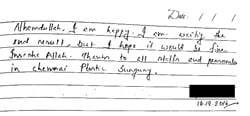 Date: / /
Alhamdulillah, I am happy. I am waiting the
end result, but I hope it would be fine
Insha Allah. Thanks to all staffs and personals
in chennai Plastic Surgery.